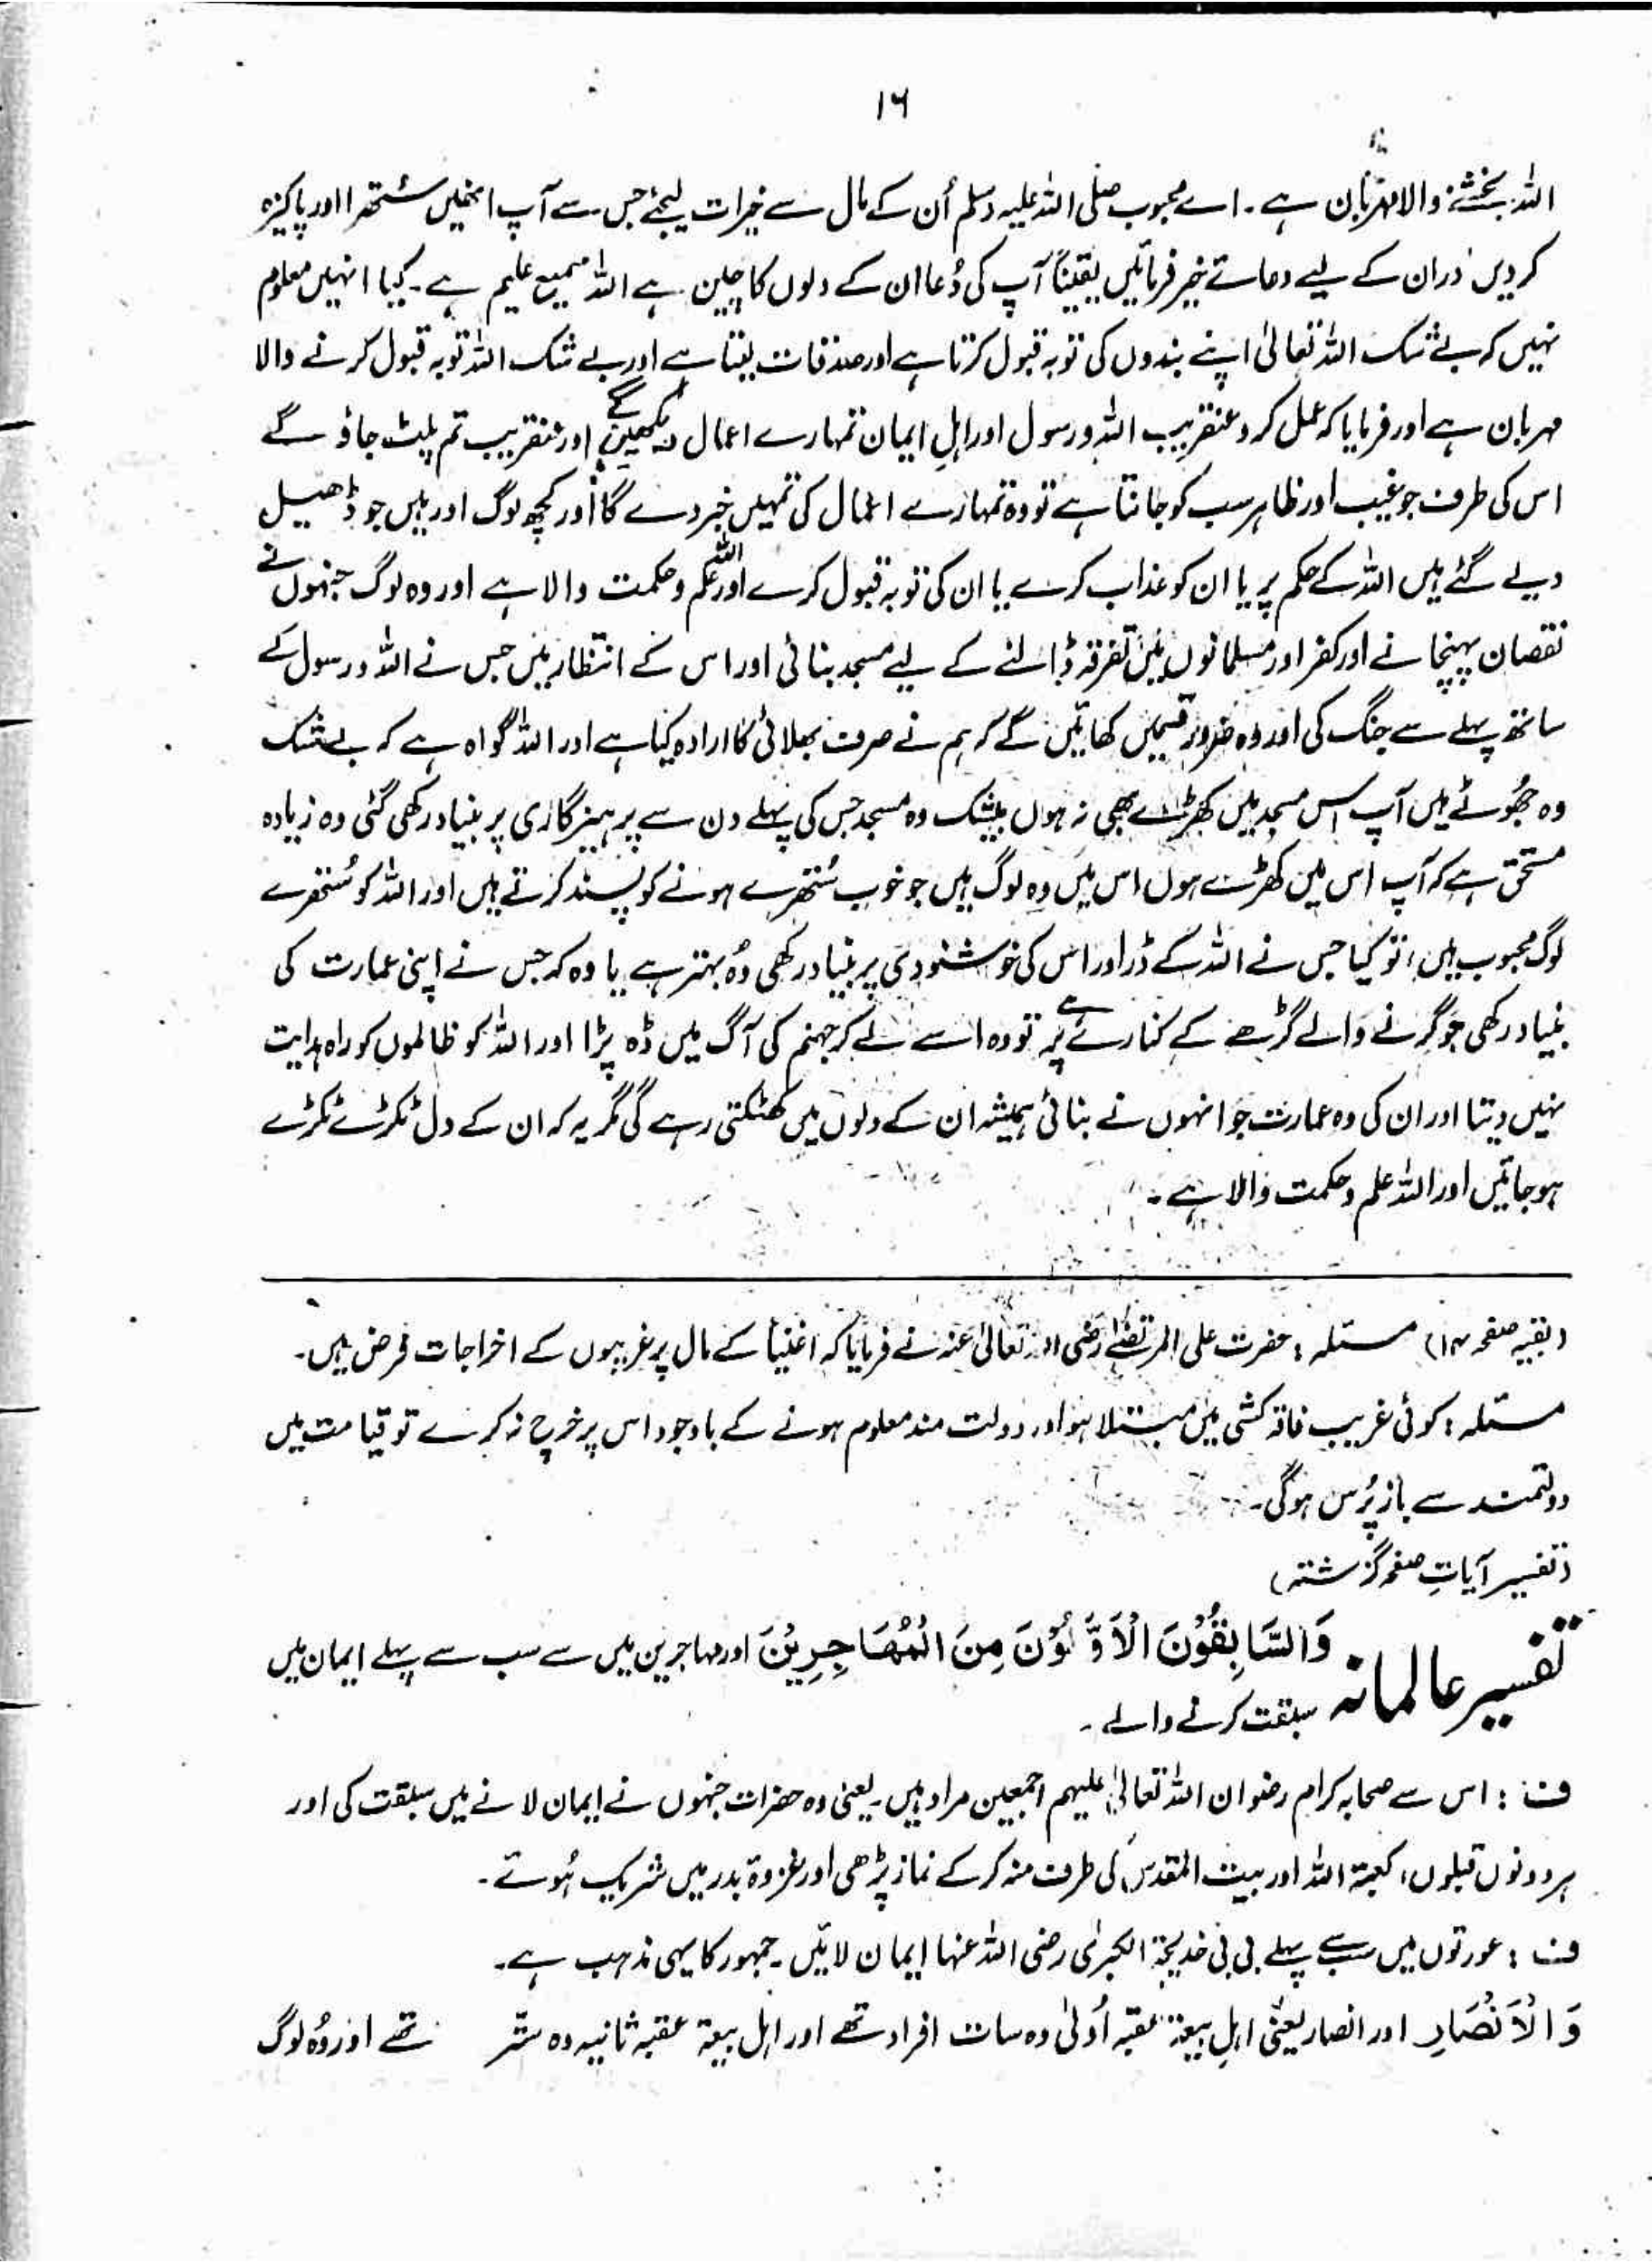 ۱۶
اللہ بخشنے والا مہربان ہے۔ اے محبوب صلی اللہ علیہ وسلم اُن کے مال سے خیرات لیجئے جس سے آپ انھیں ستھرا اور پاکیزہ
کر دیں اور ان کے لیے دعائے خیر فرمائیں یقیناً آپ کی دُعا ان کے دلوں کا چین ہے اللہ سمیع علیم ہے۔ کیا انہیں معلوم
نہیں کہ بے شک اللہ تعالیٰ اپنے بندوں کی توبہ قبول کرتا ہے اور صدقات لیتا ہے اور بے شک اللہ توبہ قبول کرنے والا
مہربان ہے اور فرمایا کہ عمل کرو عنقریب اللہ و رسول اور اہلِ ایمان تمہارے اعمال دیکھیں گے اور عنقریب تم پلٹ جاؤ گے
اس کی طرف جو غیب اور ظاہر سب کو جانتا ہے تو وہ تمہارے اعمال کی تمہیں خبر دے گا اور کچھ لوگ اور ہیں جو ڈھیل
دیے گئے ہیں اللہ کے حکم پر یا ان کو عذاب کرے یا ان کی توبہ قبول کرے اور اللہ علم و حکمت والا ہے اور وہ لوگ جنہوں نے
نقصان پہنچانے اور کفر اور مسلمانوں میں تفرقہ ڈالنے کے لیے مسجد بنائی اور اس کے انتظار میں جس نے اللہ و رسول کے
ساتھ پہلے سے جنگ کی اور وہ ضرور قسمیں کھائیں گے کہ ہم نے صرف بھلائی کا ارادہ کیا ہے اور اللہ گواہ ہے کہ بے شک
وہ جھُوٹے ہیں آپ اس مسجد میں کھڑے بھی نہ ہوں بیشک وہ مسجد جس کی پہلے دن سے پرہیزگاری پر بنیاد رکھی گئی وہ زیادہ
مستحق ہے کہ آپ اس میں کھڑے ہوں اس میں وہ لوگ ہیں جو خوب سُتھرے ہونے کو پسند کرتے ہیں اور اللہ کو سُتھرے
لوگ محبوب ہیں، تو کیا جس نے اللہ کے ڈر اور اس کی خوشنودی پر بنیاد رکھی وُہ بہتر ہے یا وہ کہ جس نے اپنی عمارت کی
بنیاد رکھی جو گرنے والے گڑھے کے کنارے پر ہے تو وہ اسے لے کر جہنم کی آگ میں ڈہ پڑا اور اللہ کو ظالموں کو راہ ہدایت
نہیں دیتا اور ان کی وہ عمارت جو انہوں نے بنائی ہمیشہ ان کے دلوں میں کھٹکتی رہے گی مگر یہ کہ ان کے دل ٹکڑے ٹکڑے
ہو جائیں اور اللہ علم و حکمت والا ہے۔
(بقیہ صفحہ ۱۴) مسئلہ: حضرت علی المرتضےٰ رضی اللہ تعالیٰ عنہ نے فرمایا کہ اغنیأ کے مال پر غریبوں کے اخراجات فرض ہیں۔
مسئلہ: کوئی غریب فاقہ کشی میں مبتلا ہو اور دولت مند معلوم ہونے کے باوجود اس پر خرچ نہ کرے تو قیامت میں
دولتمند سے باز پُرس ہوگی۔
(تفسیر آیاتِ صفحہ گزشتہ)
تفسیر عالمانہ وَالسَّابِقُوْنَ الْاَوَّلُوْنَ مِنَ الْمُھَاجِرِیْنَ اور مہاجرین میں سے سب سے پہلے ایمان میں
سبقت کرنے والے۔
ف: اس سے صحابہ کرام رضوان اللہ تعالیٰ علیہم اجمعین مراد ہیں۔ یعنی وہ حضرات جنہوں نے ایمان لانے میں سبقت کی اور
ہر دونوں قبلوں، کعبۃ اللہ اور بیت المقدس کی طرف منہ کر کے نماز پڑھی اور غزوۃ بدر میں شریک ہُوئے۔
ف: عورتوں میں سب سے پہلے بی بی خدیجۃ الکبریٰ رضی اللہ عنہا ایمان لائیں۔ جمہور کا یہی مذہب ہے۔
وَالْاَنْصَارِ اور انصار یعنی اہلِ بیعۃ عقبہ اُولیٰ وہ سات افراد تھے اور اہل بیعۃ عقبہ ثانیہ وہ ستر تھے اور وُہ لوگ